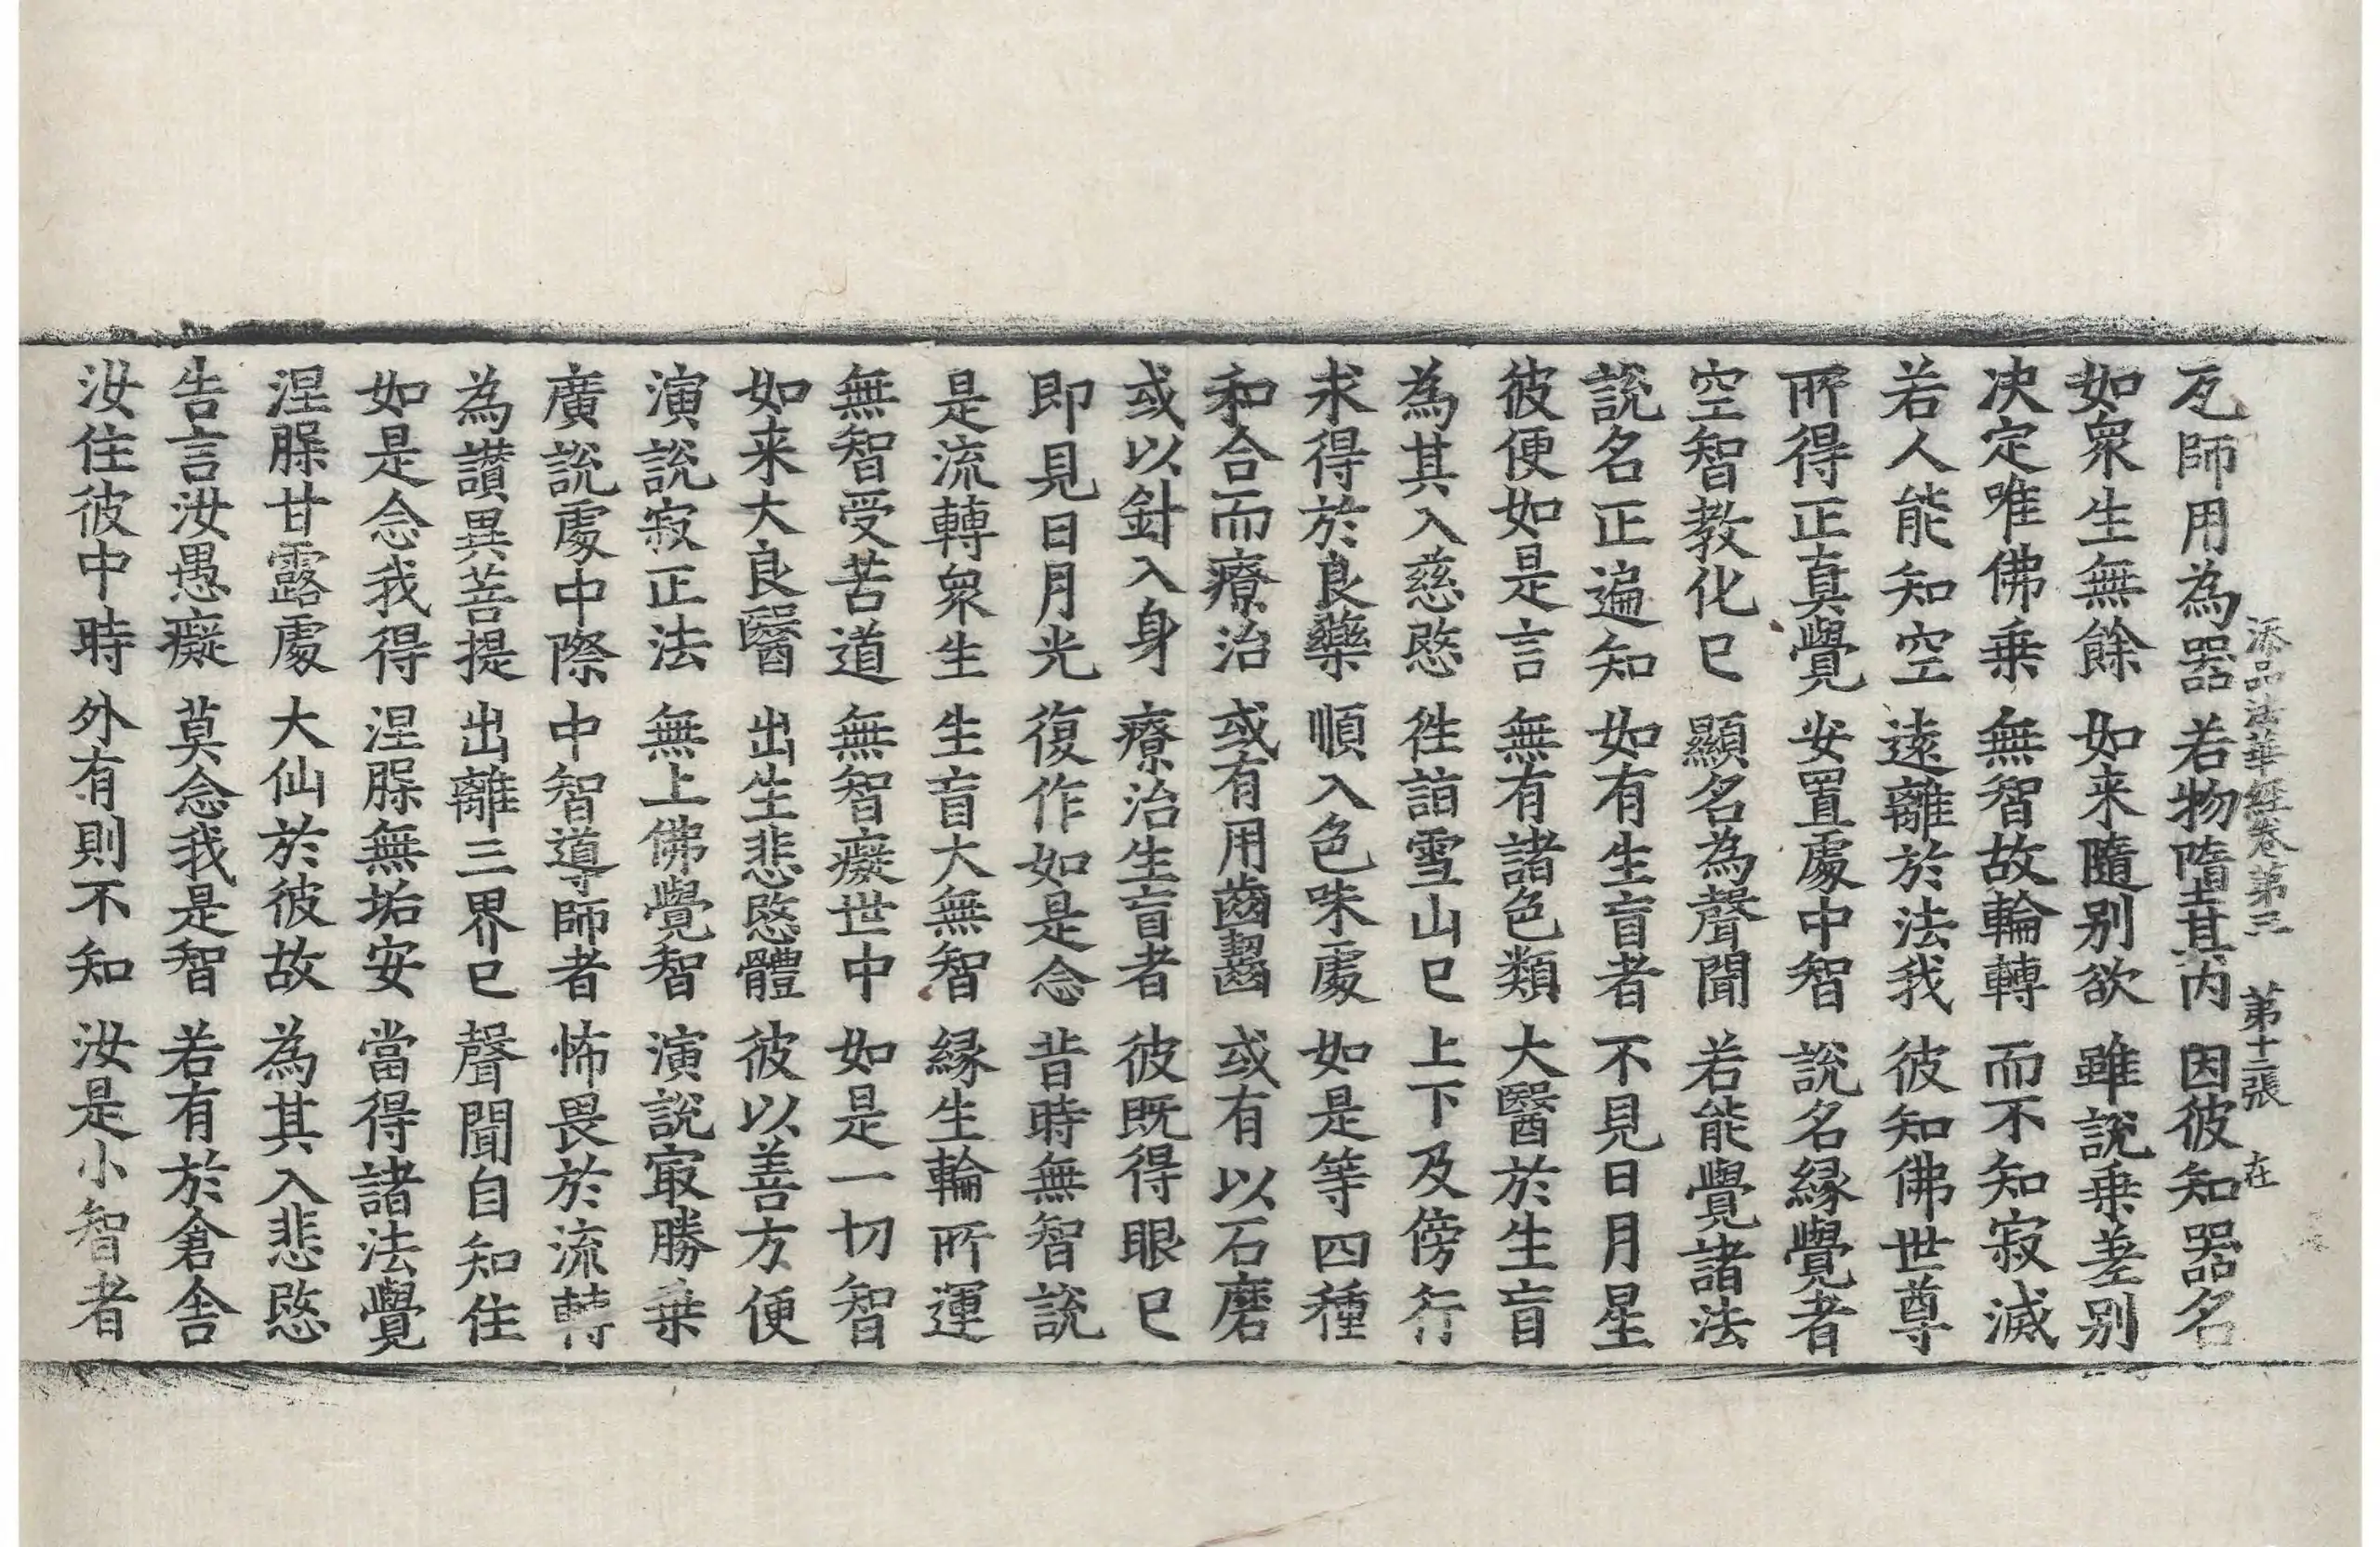 添品法華經卷第三　第十二張　在
瓦師用為器　若物墮其内　因彼知器名
如衆生無餘　如来隨别欲　雖說乗差别
决定唯佛乗　無智故輪轉　而不知寂滅
若人能知空　遠離於法我　彼知佛世尊
所得正真覺　安置處中智　說名縁覺者
空智教化已　顯名為聲聞　若能覺諸法
說名正遍知　如有生盲者　不見日月星
彼便如是言　無有諸色類　大醫於生盲
為其入慈愍　徃詣雪山已　上下及傍行
求得於良藥　順入色味處　如是等四種
和合而療治　或有用齒齧　或有以石磨
或以針入身　療治生盲者　彼既得眼已
即見日月光　復作如是念　昔時無智說
是流轉衆生　生盲大無智　縁生輪所運
無智受苦道　無智癡世中　如是一切智
如来大良醫　出生悲愍體　彼以善方便
演說寂正法　無上佛覺智　演說㝡勝乗
廣說處中際　中智導師者　怖畏於流轉
為讚異菩提　出離三界已　聲聞自知住
如是念我得　涅槃無垢安　當得諸法覺
涅槃甘露處　大仙於彼故　為其入悲愍
告言汝愚癡　莫念我是智　若有於倉舍
汝住彼中時　外有則不知　汝是小智者